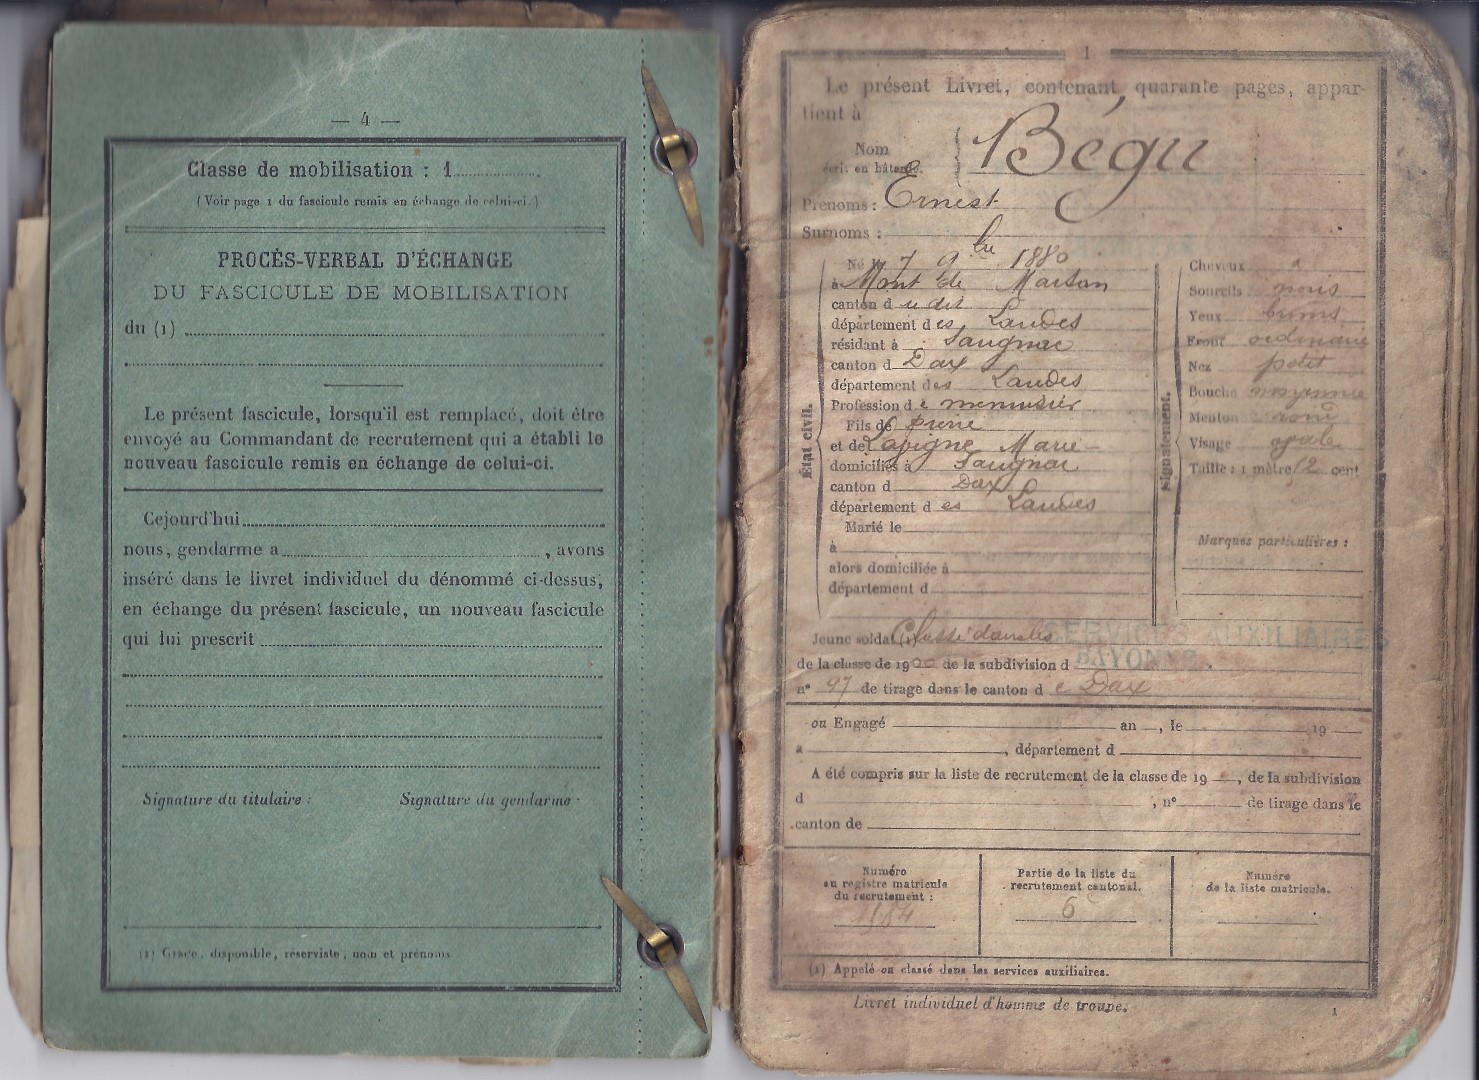 — 4 —
Classe de mobilisation : 1
(Voir page 1 du fascicule remis en échange de celui-ci.)
PROCÈS-VERBAL D'ÉCHANGE
DU FASCICULE DE MOBILISATION
du (1)
Le présent fascicule, lorsqu'il est remplacé, doit être
envoyé au Commandant de recrutement qui a établi le
nouveau fascicule remis en échange de celui-ci.
Cejourd'hui
nous, gendarme a , avons
inséré dans le livret individuel du dénommé ci-dessus,
en échange du présent fascicule, un nouveau fascicule
qui lui prescrit
Signature du titulaire :
Signature du gendarme :
(1) Grade, disponible, réserviste, nom et prénoms
1
Le présent Livret, contenant quarante pages, appar-
tient à
Nom
écrit en bâtarde.
Bégu
Prénoms : Ernest
Surnoms :
État civil.
Né le 7 9bre 1880
à Mont de Marsan
canton d u dit
département des Landes
résidant à Saugnac
canton d Dax
département des Landes
Profession de menuisier
Fils de Pierre
et de Lavigne Marie
domiciliés à Saugnac
canton d Dax
département des Landes
Marié le
à
alors domiciliée à
département d
Signalement.
Cheveux
Sourcils noirs
Yeux bruns
Front ordinaire
Nez petit
Bouche moyenne
Menton rond
Visage ovale
Taille : 1 mètre cent
Marques particulières :
Jeune soldat (1) Classé dans les SERVICES AUXILIAIRES
de la classe de 1900 de la subdivision d BAYONNE
n° 97 de tirage dans le canton de Dax
ou Engagé an , le 19
a , département d
A été compris sur la liste de recrutement de la classe de 19 , de la subdivision
d , n° de tirage dans le
canton de
Numéro
au registre matricule
du recrutement :
1184
Partie de la liste du
recrutement cantonal.
6
Numéro
de la liste matricule.
(1) Appelé ou classé dans les services auxiliaires.
Livret individuel d'homme de troupe.
1